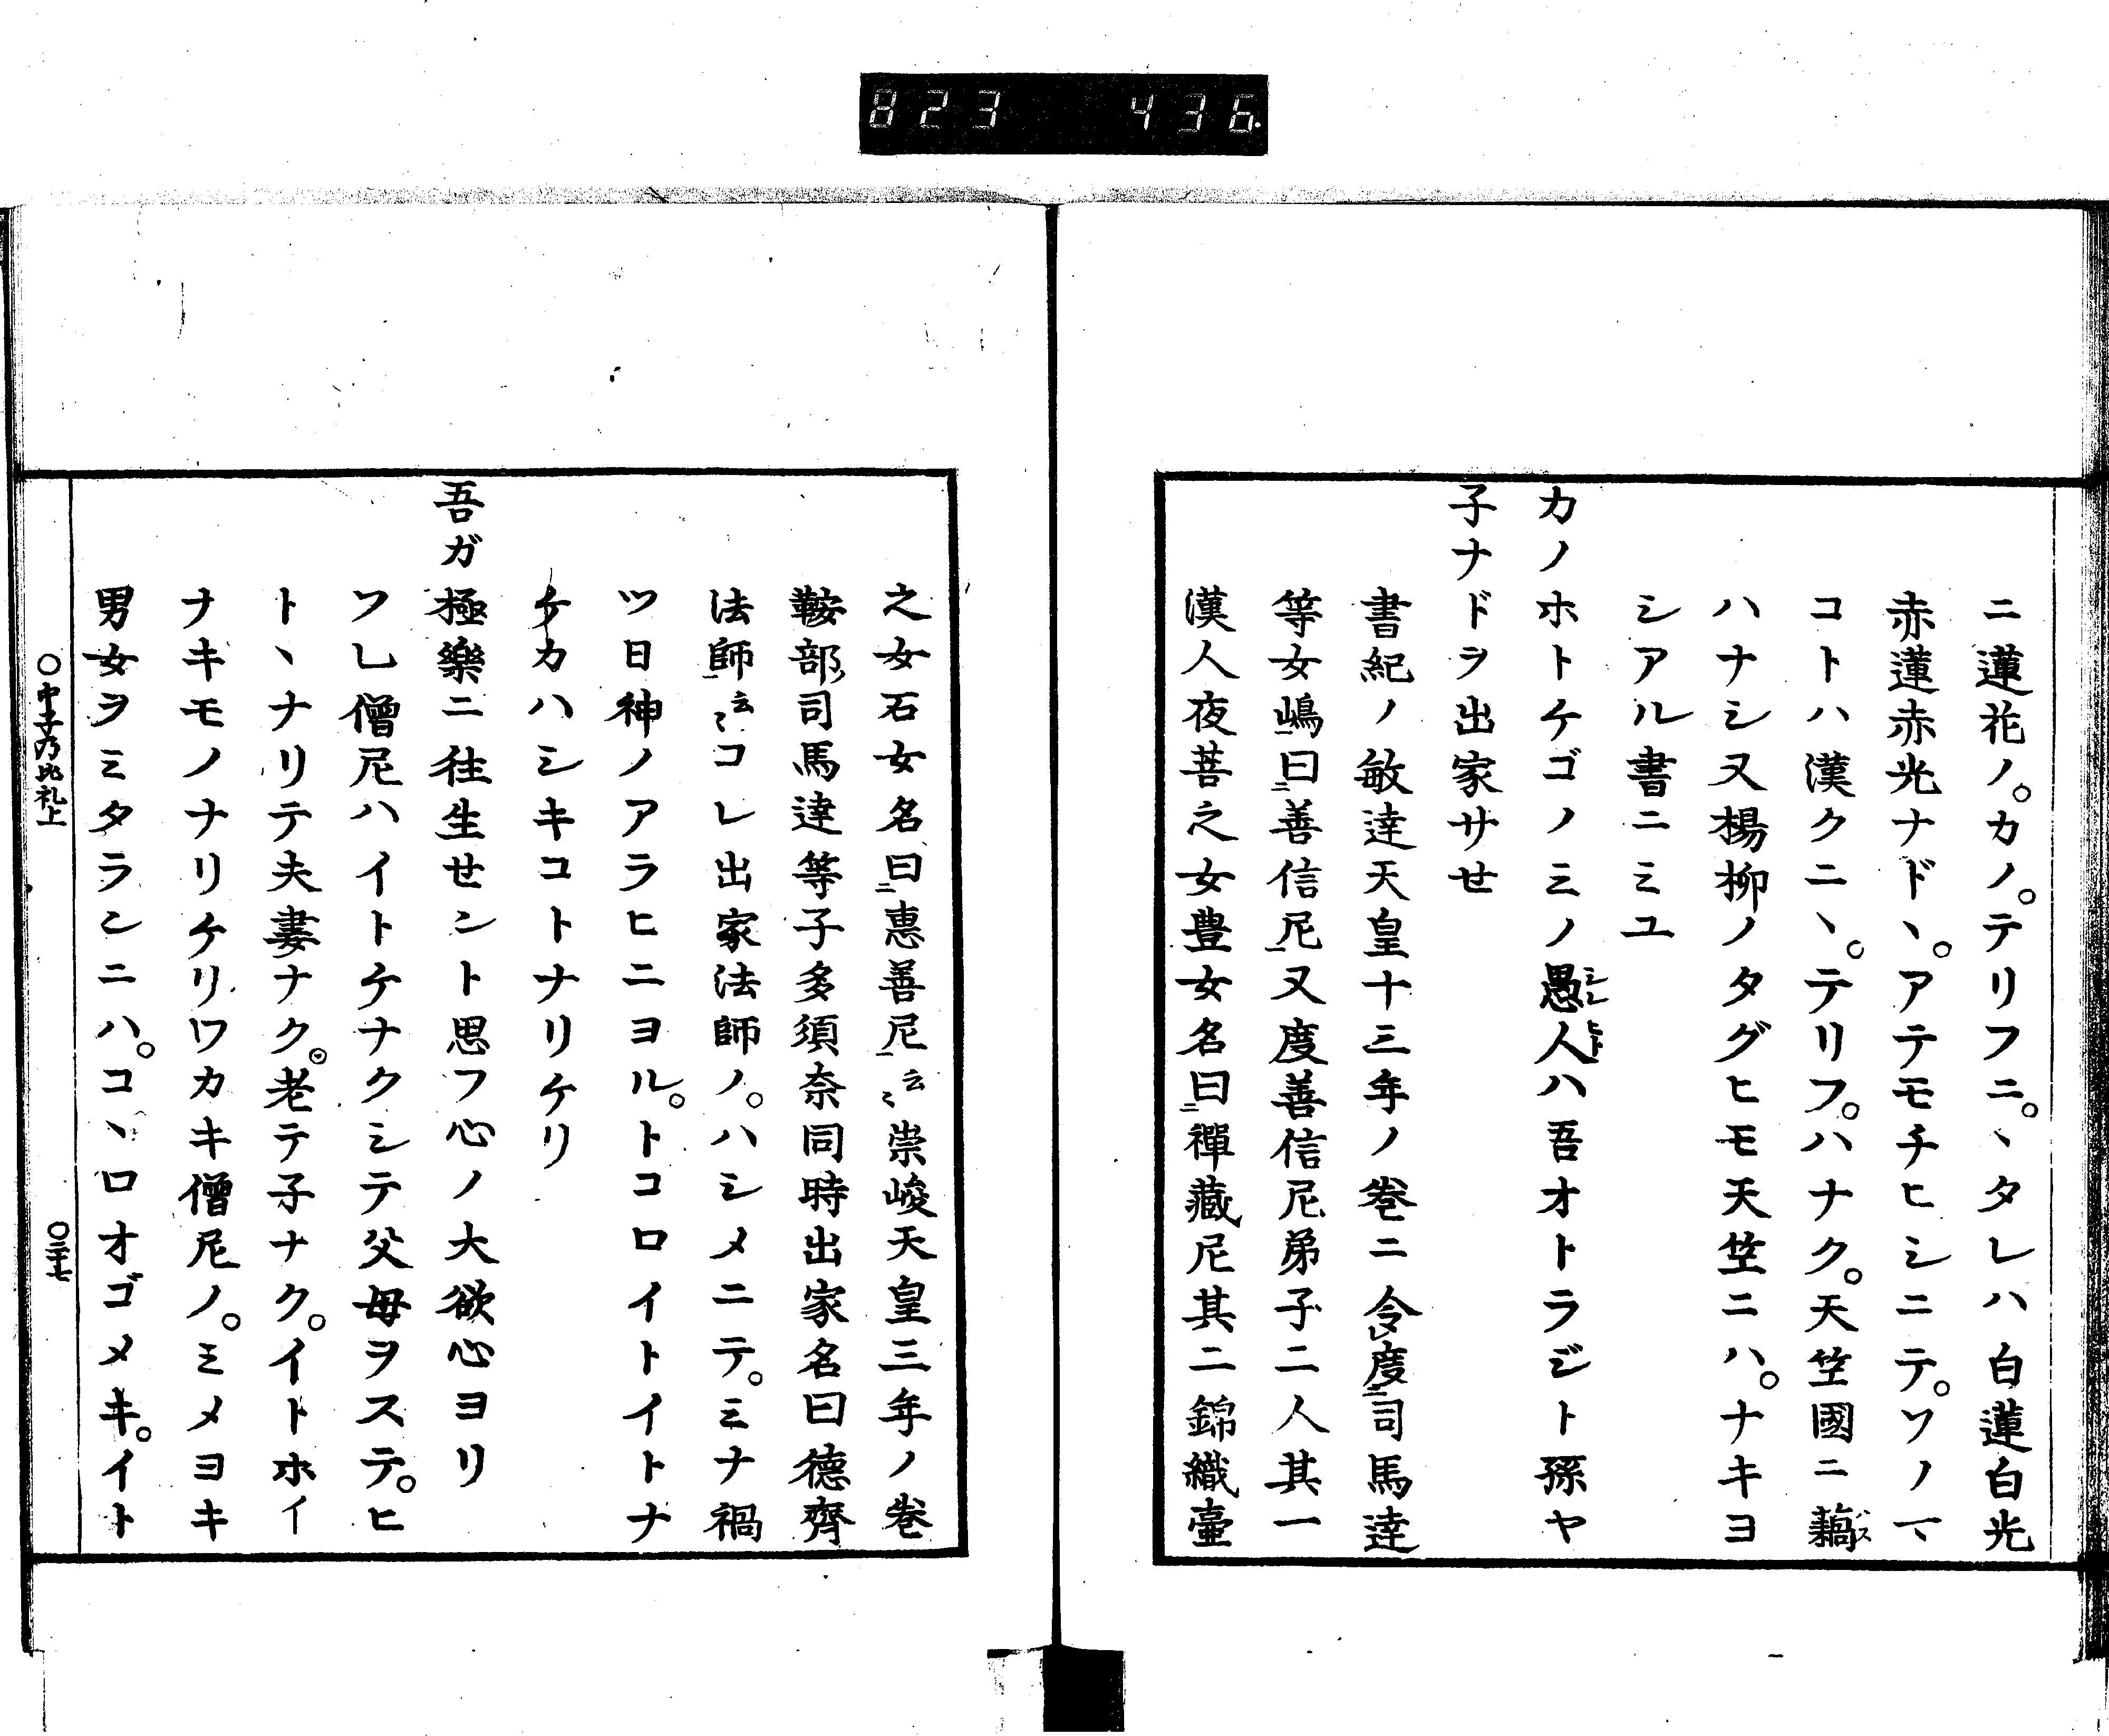 823 436
ニ蓮花ノ。カノ。テリフニ。ヽタレハ白蓮白光
赤蓮赤光ナドヽ。アテモチヒシニテ。ソノ一ヽ
コトハ漢クニヽ。テリフ。ハナク。天竺國ニ藕ハス
ハナシ又楊柳ノタグヒモ天竺ニハ。ナキヨ
シアル書ニミユ
カノホトケゴノミノ愚人シレヒトハ吾オトラジト孫ヤ
子ナドヲ出家サせ
書紀ノ敏達天皇十三年ノ巻ニ令レ度二司馬達
等女嶋一曰二善信尼一又度善信尼弟子二人其一
漢人夜菩之女豊女名曰二禪藏尼其二錦織壷
之女石女名曰二惠善尼一云〻崇峻天皇三年ノ巻
鞍部司馬達等子多須奈同時出家名曰德齊
法師一云〻コレ出家法師ノ。ハシメニテ。ミナ禍
ツ日神ノアラヒニヨル。トコロイトイトナ
ケカハシキコトナリケリ
吾ガ極樂ニ徃生せント思フ心ノ大欲心ヨリ
フレ僧尼ハイトケナクシテ父母ヲステ。ヒ
トヽナリテ夫妻ナク。老テ子ナク。イトホイ
ナキモノナリケリワカキ僧尼ノ。ミメヨキ
男女ヲミタランニハ。コヽロオゴメキ。イト
〇中子乃比礼上
〇三十七